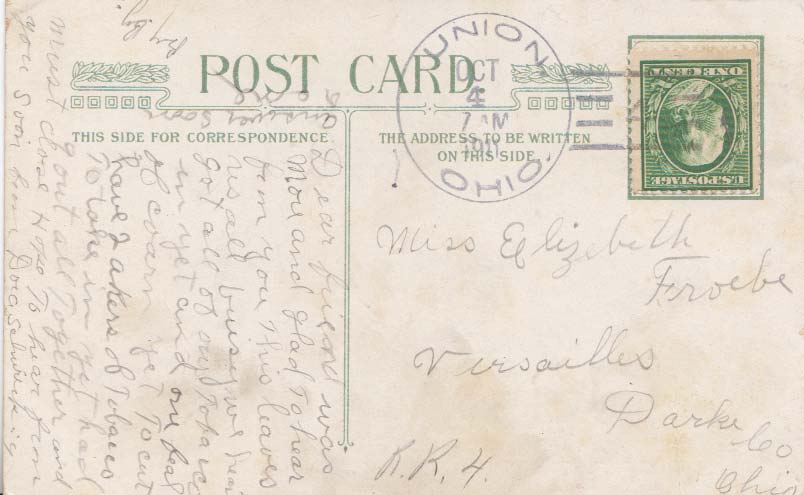 POST CARD
THIS SIDE FOR CORRESPONDENCE.
THE ADDRESS TO BE WRITTEN
ON THIS SIDE.
UNION
OCT
4
7 AM
OHIO.
U.S. POSTAGE
ONE CENT
Miss Eqlizebeth
Froebe
Versailles
Darke Co
Ohio
R.R. 4.
Dear friend was
More and glad to hear
from you this leaves
us all buisy we
got all of our tobacco
in yet and one feal
of coarn yet to cut
have 2 akers of tobaco
to take in yet had
9 out all together and
must close Hope to hear from
you soon from
answer soon